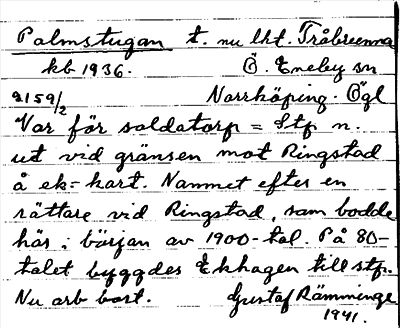 Palmstugan t. nu lht. Tråbrunna
kb 1936. Ö. Eneby sn
2159/2 Norrköping. Ögl
Var för soldatorp = Stp n.
ut vid gränsen mot Ringstad
å ek= kart. Namnet efter en
rättare vid Ringstad, som bodde
här i början av 1900-tal. På 80-
talet byggdes Ekhagen till stp.
Nu arb bost. Gustaf Rämminge
1941.